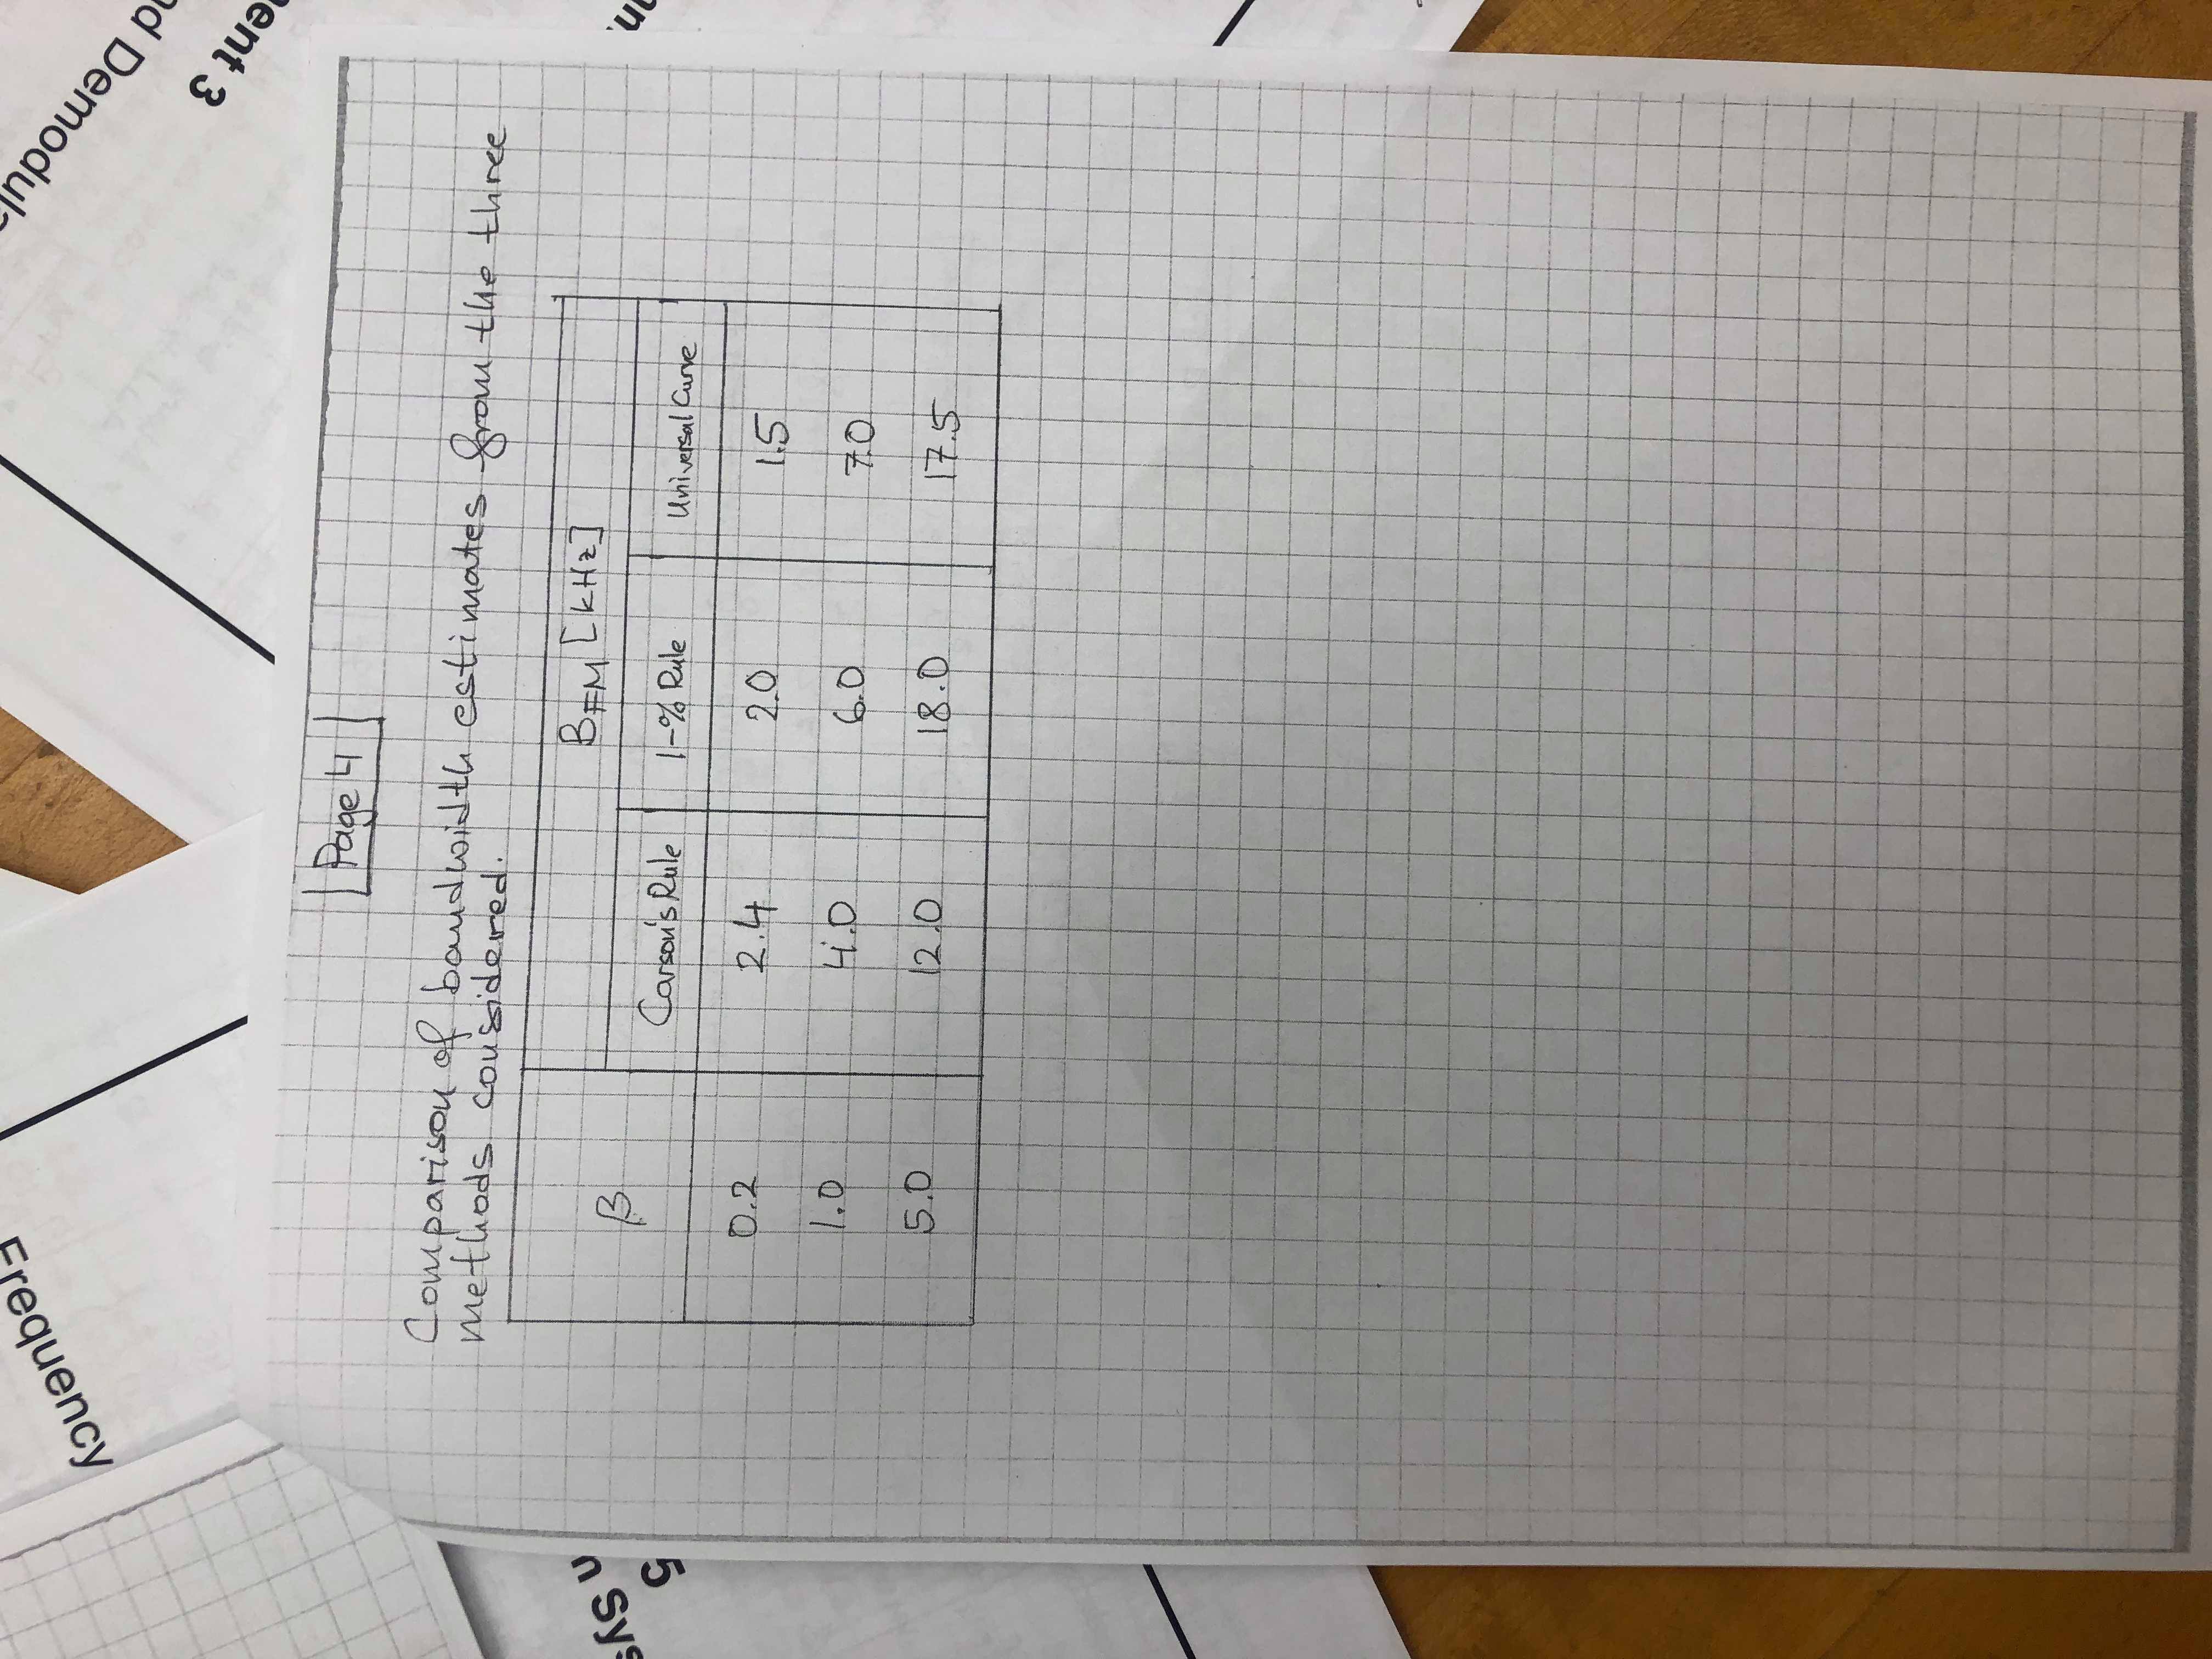 Frequency
nd Demodula
ent 3
n Sys
5
Page 4
Comparison of bandwidth estimates from the three
methods considered.
β
BFM [kHz]
Carson's Rule 1-% Rule Universal Curve
0.2 2.4 2.0 1.5
1.0 4.0 6.0 7.0
5.0 12.0 18.0 17.5